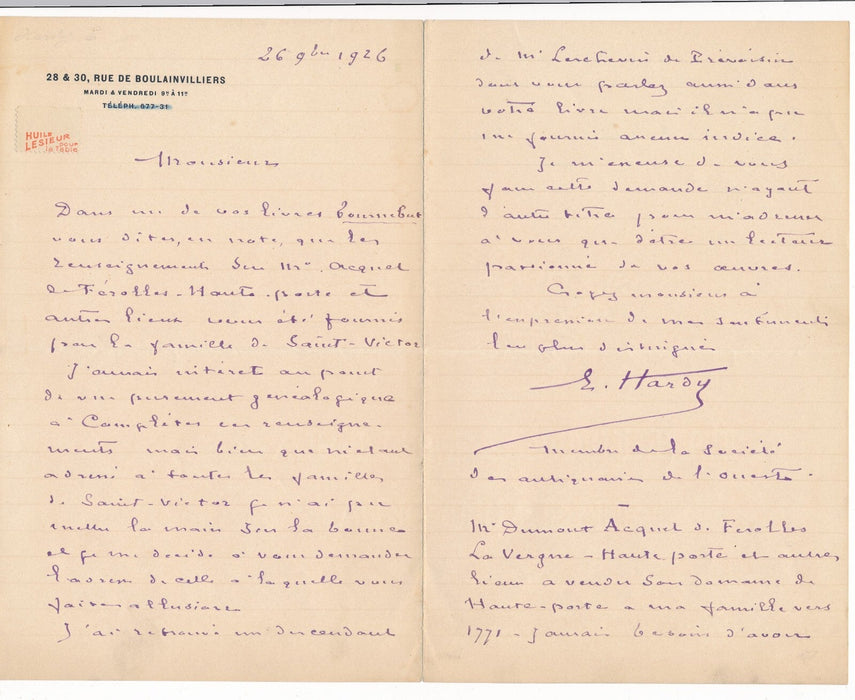 26 9bre 1926
28 & 30, RUE DE BOULAINVILLIERS
MARDI & VENDREDI 9H À 11H
TÉLÉPH. 677-31
HUILE
LESIEUR pour
la table
Monsieur
Dans un de vos livres Tournebut
vous dites, en note, que les
renseignements sur Mr. Acquet
de Férolles-Haute-porte et
autres lieux vous été fournis
par la famille de Saint-Victor
J'aurais intéret au point
de vue purement généalogique
à compléter ces renseigne-
ments mais bien que m'étant
adressé à toutes les familles
de Saint-Victor je n'ai pu
mettre la main sur la bonne
et je me décide à vous demander
l'adresse de celle à laquelle vous
faites allusion
J'ai retrouvé un descendant
de Mr Lerchevin de Prévoisin
dont vous parlez aussi dans
votre livre mais il n'a pu
me fournir aucun indice.
Je m'excuse de vous
faire cette demande n'ayant
d'autre titre pour m'adresser
à vous que d'être un lecteur
passionné de vos œuvres.
Croyez monsieur à
l'expression de mes sentiments
les plus distingués
E. Hardy
membre de la Société
des antiquaires de l'ouest.
Mr Dumont Acquet de Ferolles
La Vergne - Haute porte et autres
lieux a vendu son domaine de
Haute-porte à ma famille vers
1771 - J'aurais besoin d'avoir